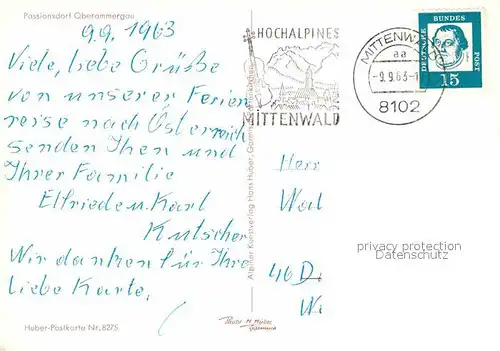 Passionsdorf Oberammergau
9.9.1963
Viele, liebe Grüße
von unserer Ferien
reise nach Österreich
senden Ihnen und
Ihrer Familie
Elfriede u. Karl
Kutscher
Wir danken für Ihre
liebe Karte.
Huber-Postkarte Nr. 8275
Atelier Kunstverlag Hans Huber, Garmisch-Partenkirchen
HOCHALPINES
MITTENWALD
MITTENWALD
aa
-9.9.63-1
8102
DEUTSCHE BUNDES POST
15
Herr
Wal
privacy protection
Datenschutz
46 D
Photo H. Huber
Garmisch